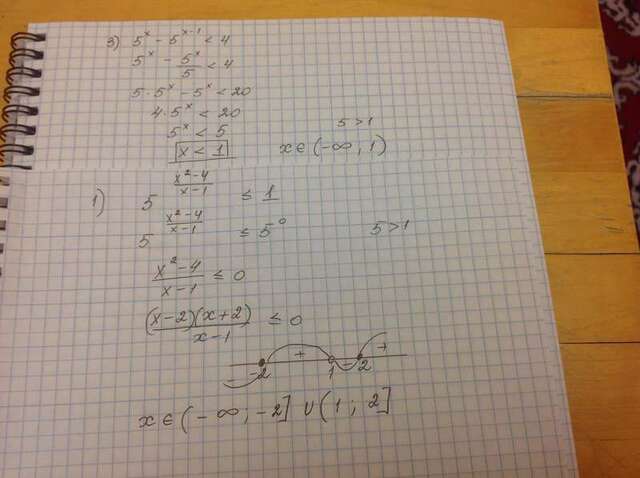 3) 5^x - 5^(x-1) < 4
5^x - 5^x/5 < 4
5·5^x - 5^x < 20
4·5^x < 20
5^x < 5 5 > 1
x < 1 x ∈ (-∞; 1)
1) 5^((x²-4)/(x-1)) ≤ 1
5^((x²-4)/(x-1)) ≤ 5^0 5 > 1
(x²-4)/(x-1) ≤ 0
(x-2)(x+2)/(x-1) ≤ 0
- + - +
-2 1 2
x ∈ (-∞; -2] ∪ (1; 2]